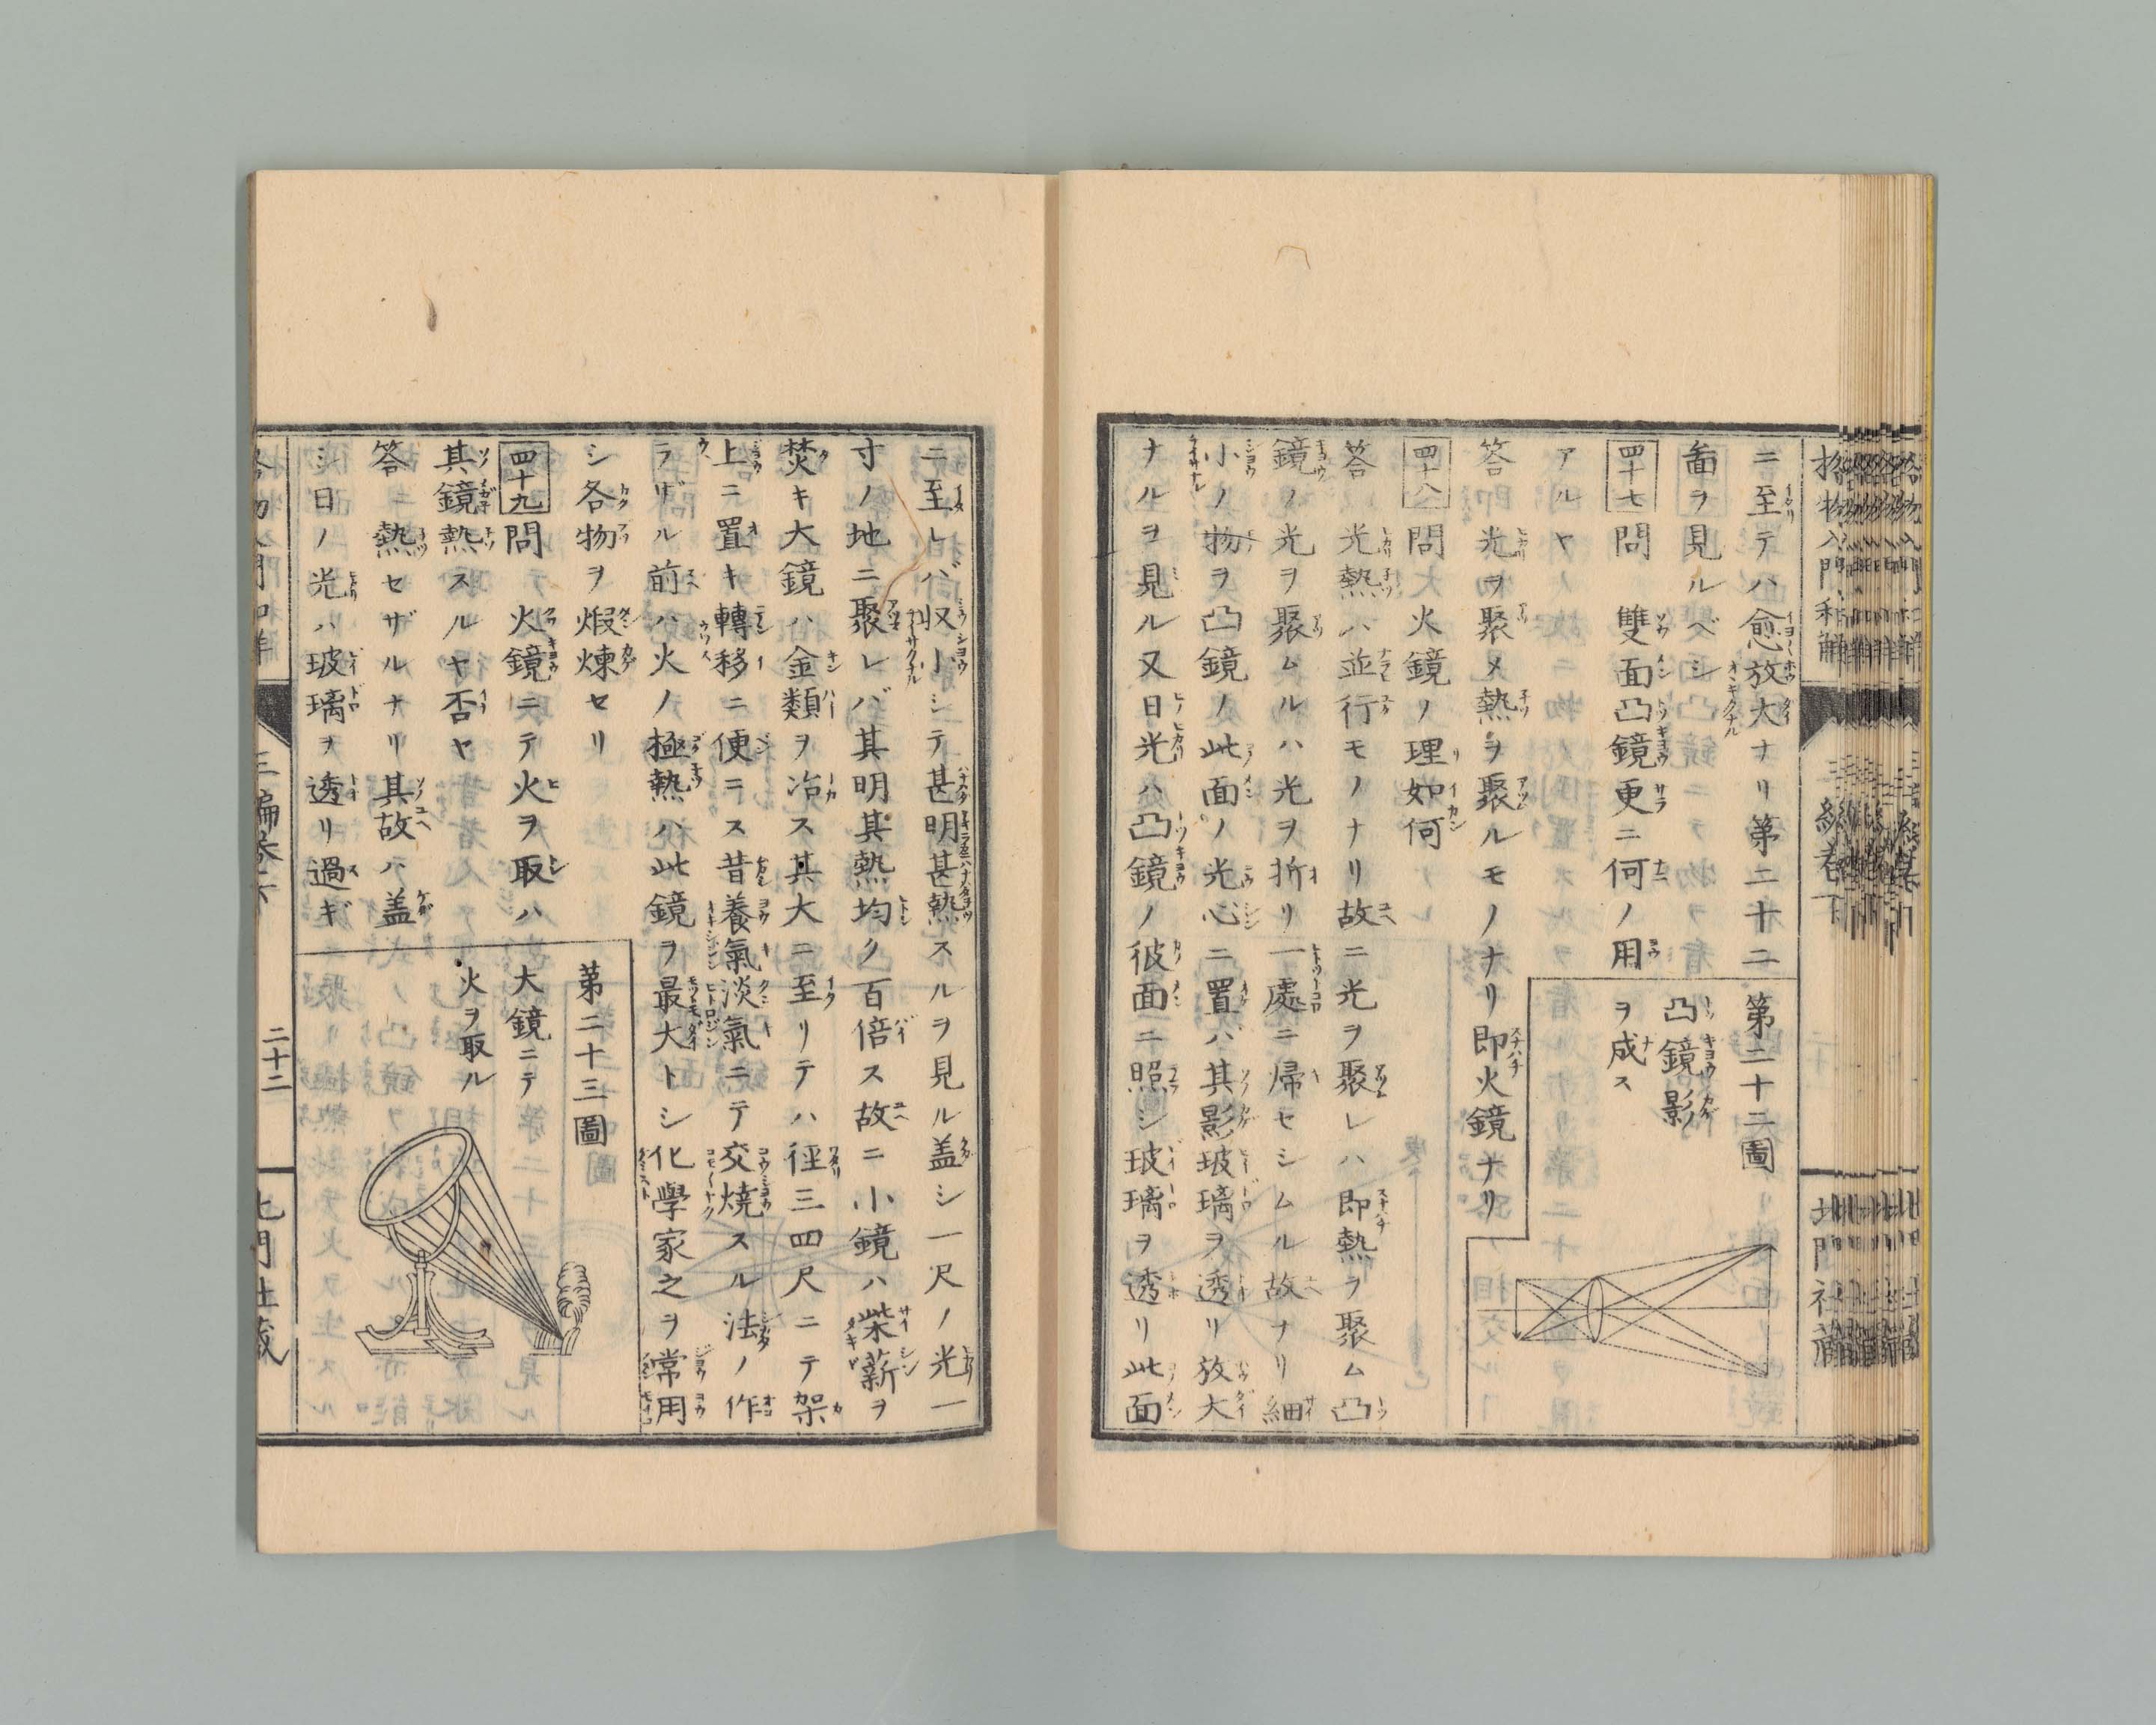 格物入門和解
北門社藏
ニ至テハ愈放大ナリ第二十二
圖ヲ見ルベシ
四十七 問 雙面凸鏡更ニ何ノ用
アルヤ
答 光ヲ聚メ熱ヲ聚ルモノナリ即火鏡ナリ
四十八 問 火鏡ノ理如何
答 光熱ハ並行モノナリ故ニ光ヲ聚レハ即熱ヲ聚ム凸
鏡ノ光ヲ聚ムルハ光ヲ折リ一處ニ帰セシムル故ナリ細
小ノ物ヲ凸鏡ノ此面ノ光心ニ置バ其影玻璃ヲ透リ放大
ナルヲ見ル又日光ハ凸鏡ノ彼面ニ照シ玻璃ヲ透リ此面
第二十二圖
凸鏡影
ヲ成ス
ニ至レバ収小シテ甚明甚熱スルヲ見ル盖シ一尺ノ光一
寸ノ地ニ聚レバ其明其熱均ク百倍ス故ニ小鏡ハ柴薪ヲ
焚キ大鏡ハ金類ヲ冶ス其大ニ至リテハ徑三四尺ニテ架
上ニ置キ轉移ニ便ニス昔養氣淡氣ニテ交焼スル法ノ作
ラザル前ハ火ノ極熱ハ此鏡ヲ最大トシ化學家之ヲ常用
シ各物ヲ煆煉セリ
四十九 問 火鏡ニテ火ヲ取ハ
其鏡熱スルヤ否ヤ
答 熱セザルナリ其故ハ盖
シ日ノ光ハ玻璃ヲ透リ過ギ
第二十三圖
大鏡ニテ
火ヲ取ル
格物入門和解
三編卷下
二十二
北門社藏